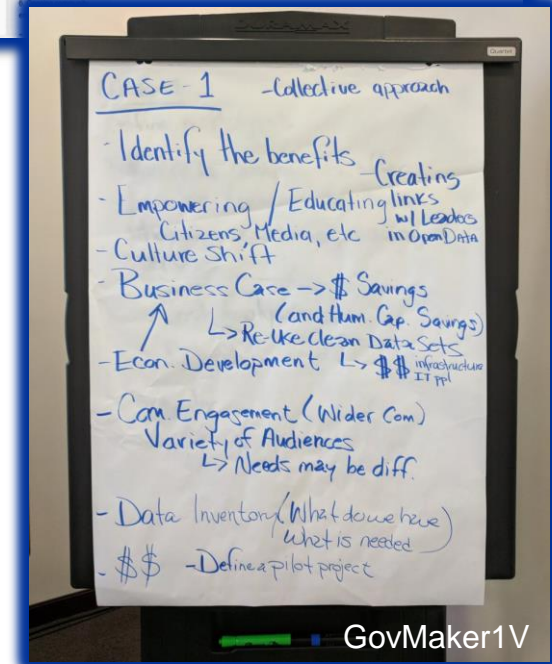 DURAMAX
Quartet
CASE-1 -Collective approach
- Identify the benefits
-Creating
- Empowering / Educating links
w/ Leaders
Citizens, Media, etc in Open Data
- Culture Shift
- Business Case -> $ Savings
(and Hum. Cap. Savings)
↳ Re-Use Clean Data Sets
- Econ. Development ↳ $$ infrastructure
IT ppl
- Com. Engagement (Wider Com)
Variety of Audiences
↳ Needs may be diff.
- Data Inventory (What do we have)
What is needed
- $$ -Define a pilot project
GovMaker1V